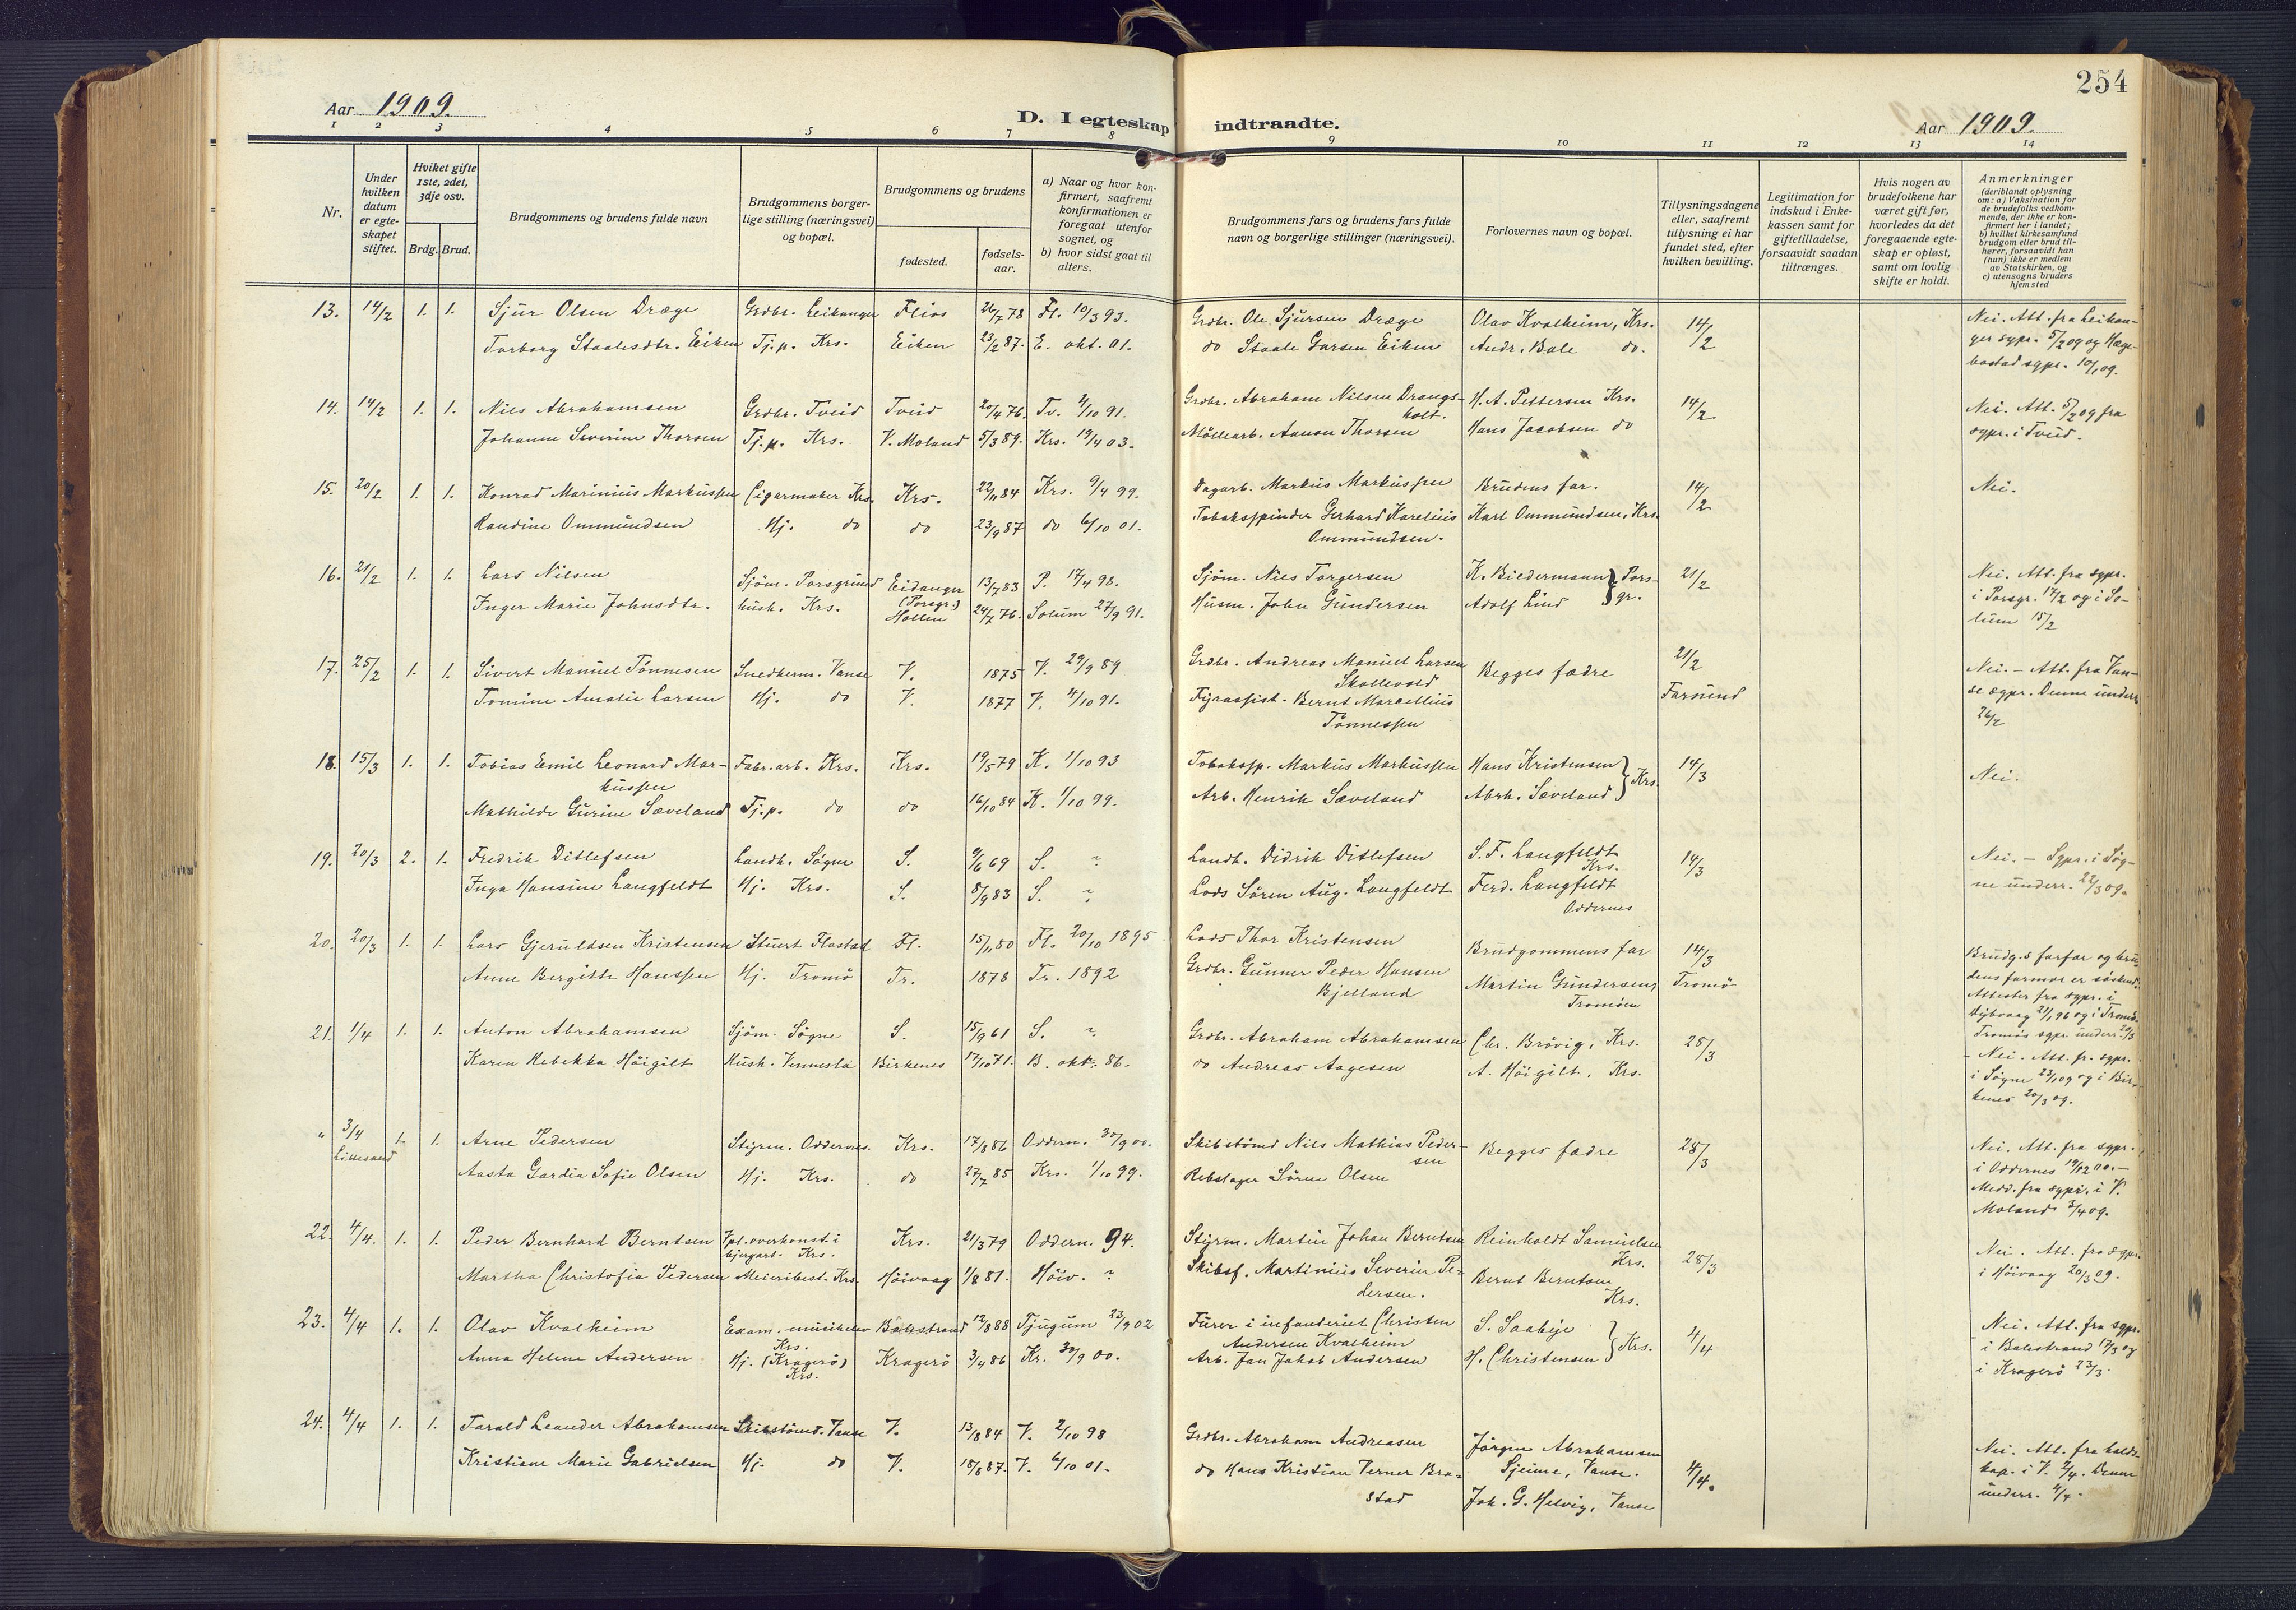 254
Aar 1909.
D. I egteskap indtraadte.
Aar 1909.
1 2 3 4 5 6 7 8 9 10 11 12 13 14
Nr.
Under hvilken datum er egteskapet stiftet.
Hviket gifte 1ste, 2det, 3dje osv.
Brdg. Brud.
Brudgommens og brudens fulde navn
Brudgommens borgerlige stilling (næringsvei) og bopæl.
Brudgommens og brudens
fødested.
fødselsaar.
a) Naar og hvor konfirmert, saafremt konfirmationen er foregaat utenfor sognet, og
b) hvor sidst gaat til alters.
Brudgommens fars og brudens fars fulde navn og borgerlige stillinger (næringsvei).
Forlovernes navn og bopæl.
Tillysningsdagene eller, saafremt tillysning ei har fundet sted, efter hvilken bevilling.
Legitimation for indskud i Enkekassen samt for giftetilladelse, forsaavidt saadan tiltrænges.
Hvis nogen av brudefolkene har været gift før, hvorledes da det foregaaende egteskap er opløst, samt om lovlig skifte er holdt.
Anmerkninger (deriblandt oplysning om: a) Vaksination for de brudefolks vedkommende, der ikke er konfirmert her i landet; b) hvilket kirkesamfund brudgom eller brud tilhører, forsaavidt han (hun) ikke er medlem av Statskirken, og c) utensogns bruders hjemsted
13. 14/2 1. 1. Sjur Olsen Dræge Grdbr. Leikanger Flios 26/7 78 Fl. 10/3 93. Grdbr. Ole Sjursen Dræge Olav Kvalheim, Krs. 14/2 Nei. Att. fra Leikan-
Torborg Staalesdtr. Eiken Tj.p. Krs. Eiken 23/2 87. E. okt. 01. do Staale Garsen Eiken Andr. Bale do. ger sgpr. 5/2 09 og Hæge-
bostad sgpr. 10/1 09.
14. 14/2 1. 1. Nils Abrahamsen Grdbr. Tveid Tveid 20/4 76. Tv. 4/10 91. Grdbr. Abraham Nilsen Drangs-
holt. H. A. Pettersen Krs. 14/2 Nei. Att. 5/2 09 fra
Johanne Severine Thorsen Tj.p. Krs. V. Moland 5/3 89. Krs. 19/4 03. Möllearb. Aanon Thorsen Hans Jacobsen do sgpr. i Tveid.
15. 20/2 1. 1. Konrad Marinius Markussen Cigarmaker Krs. Krs. 22/11 84 Krs. 9/4 99. Dagarb. Markus Markussen Brudens far. 14/2 Nei.
Randine Ommundsen Hj. do do 23/9 87 do 6/10 01. Tobakspinder Gerhard Karelius Karl Ommundsen, Krs.
Ommundsen.
16. 21/2 1. 1. Lars Nilsen Sjöm. Porsgrund Eidanger (Porsgr.) 13/7 83 P. 17/4 98. Sjöm. Nils Torgersen K. Biedermann Pors- 21/2 Nei. Att. fra sgpr.
Inger Marie Johnsdtr. hush. Krs. Hollen 24/7 76. Solum 27/9 91. Husm. John Gundersen Adolf Lind gr. i Porsgr. 17/2 og i So-
lum 15/2
17. 25/2 1. 1. Sivert Manuel Tönnesen Snedkerm. Vanse V. 1875 V. 29/9 89 Grdbr. Andreas Manuel Larsen Begges fædre 21/2 Nei. - Att. fra Van-
Skollevold
Tomine Amalie Larsen Hj. do V. 1877 V. 4/10 91. Fyrassist. Bernt Marcellius Farsund se sgpr. Denne underr.
Tönnessen 26/2
18. 15/3 1. 1. Tobias Emil Leonard Mar- Fabr.arb. Krs. Krs. 19/5 79 K. 1/10 93 Tobaksp. Markus Markussen Hans Kristensen 14/3 Nei.
kussen Krs.
Mathilde Gurine Sæveland Tj.p. do do 16/10 84 K. 1/10 99. Arb. Henrik Sæveland Abrh. Sæveland
19. 20/3 2. 1. Fredrik Ditlefsen Landh. Sögne S. 9/6 69 S. ? Landh. Didrik Ditlefsen S. F. Langfeldt 14/3 Nei. - Sgpr. i Sög-
Krs.
Inga Hansine Langfeldt Hj. Krs. S. 8/9 83 S. ? Lods Sören Aug. Langfeldt Ferd. Langfeldt ne underr. 22/3 09.
Oddernes
20. 20/3 1. 1. Lars Gjeruldsen Kristensen Stuert Flostad Fl. 15/11 80 Fl. 20/10 1895 Lods Thor Kristensen Brudgommens far 14/3 Brudg.s farfar og bru-
Anne Bergitte Hanssen Hj. Tromö Tr. 1878 Tr. 1892 Grdbr. Gunner Peder Hansen Martin Gundersen, Tromö dens farmor er söskend.
Bjelland Tromöen Attester fra sgpr. i
Tromös sgpr. underr. 20/3
21. 1/4 1. 1. Anton Abrahamsen Sjöm. Sögne S. 15/9 61 S. ? Grdbr. Abraham Abrahamsen Chr. Brövig, Krs. 28/3 - Nei. Att. fr. sgpr.
Karen Rebekka Höigilt Hush. Vennesla Birkenes 17/10 71. B. okt. 86. do Andreas Aagesen A. Höigilt, Krs. i Sögne 23/1 09 og i Bir-
kenes 20/3 09.
" 3/4 Lillesand 1. 1. Arne Pedersen Styrm. Oddernes. Krs. 17/8 86 Oddern. 30/9 00. Skibstömd Nils Mathias Peder- Begges fædre 28/3 Nei. Att. fra sgpr.
sen
Aasta Gardia Sofie Olsen Hj. Krs. do 27/7 85 Krs. 1/10 99. Rebslager Sören Olsen i Oddernes 19/12 00. -
Medd. fra sgpr. i V.
Moland 3/4 09.
22. 4/4. 1. 1. Peder Bernhard Berntsen Fpl. overkonst. i Krs. 21/3 79 Oddern. 94. Styrm. Martin Johan Berntsen Reinholdt Samuelsen 28/3 Nei. Att. fra sgpr.
bjergart. Krs. Krs.
Martha Christofia Pedersen Meieribest. Krs. Höivaag 1/8 81. Höiv. ? Skibsf. Martinius Severin Pe- Bernt Berntsen i Höivaag 20/3 09.
dersen. Krs.
23. 4/4 1. 1. Olav Kvalheim Exam. musikelev Balestrand 12/8 88 Tjugum 23/9 02 Furer i infanteriet Christen S. Saabye 4/4 Nei. Att. fra sgpr.
Krs. Andersen Kvalheim Krs. i Balestrand 17/3 og
Anna Helene Andersen Hj. (Kragerö) Kragerö 3/4 86 Kr. 30/9 00. Arb. Jan Jakob Andersen H. Christensen i Kragerö 23/3.
Krs.
24. 4/4 1. 1. Tarald Leander Abrahamsen Skibstömd. Vanse V. 13/8 84 V. 2/10 98 Grdbr. Abraham Andreasen Jörgen Abrahamsen 4/4. Nei. Att. fra kalds-
Kristiane Marie Gabrielsen Hj. do V. 18/8 87. V. 6/10 01. do Hans Kristian Verner Bra- Sjeime, Vanse. kap. i V. 2/4. Denne
stad Joh. G. Helvig, Vanse underr. 4/4.